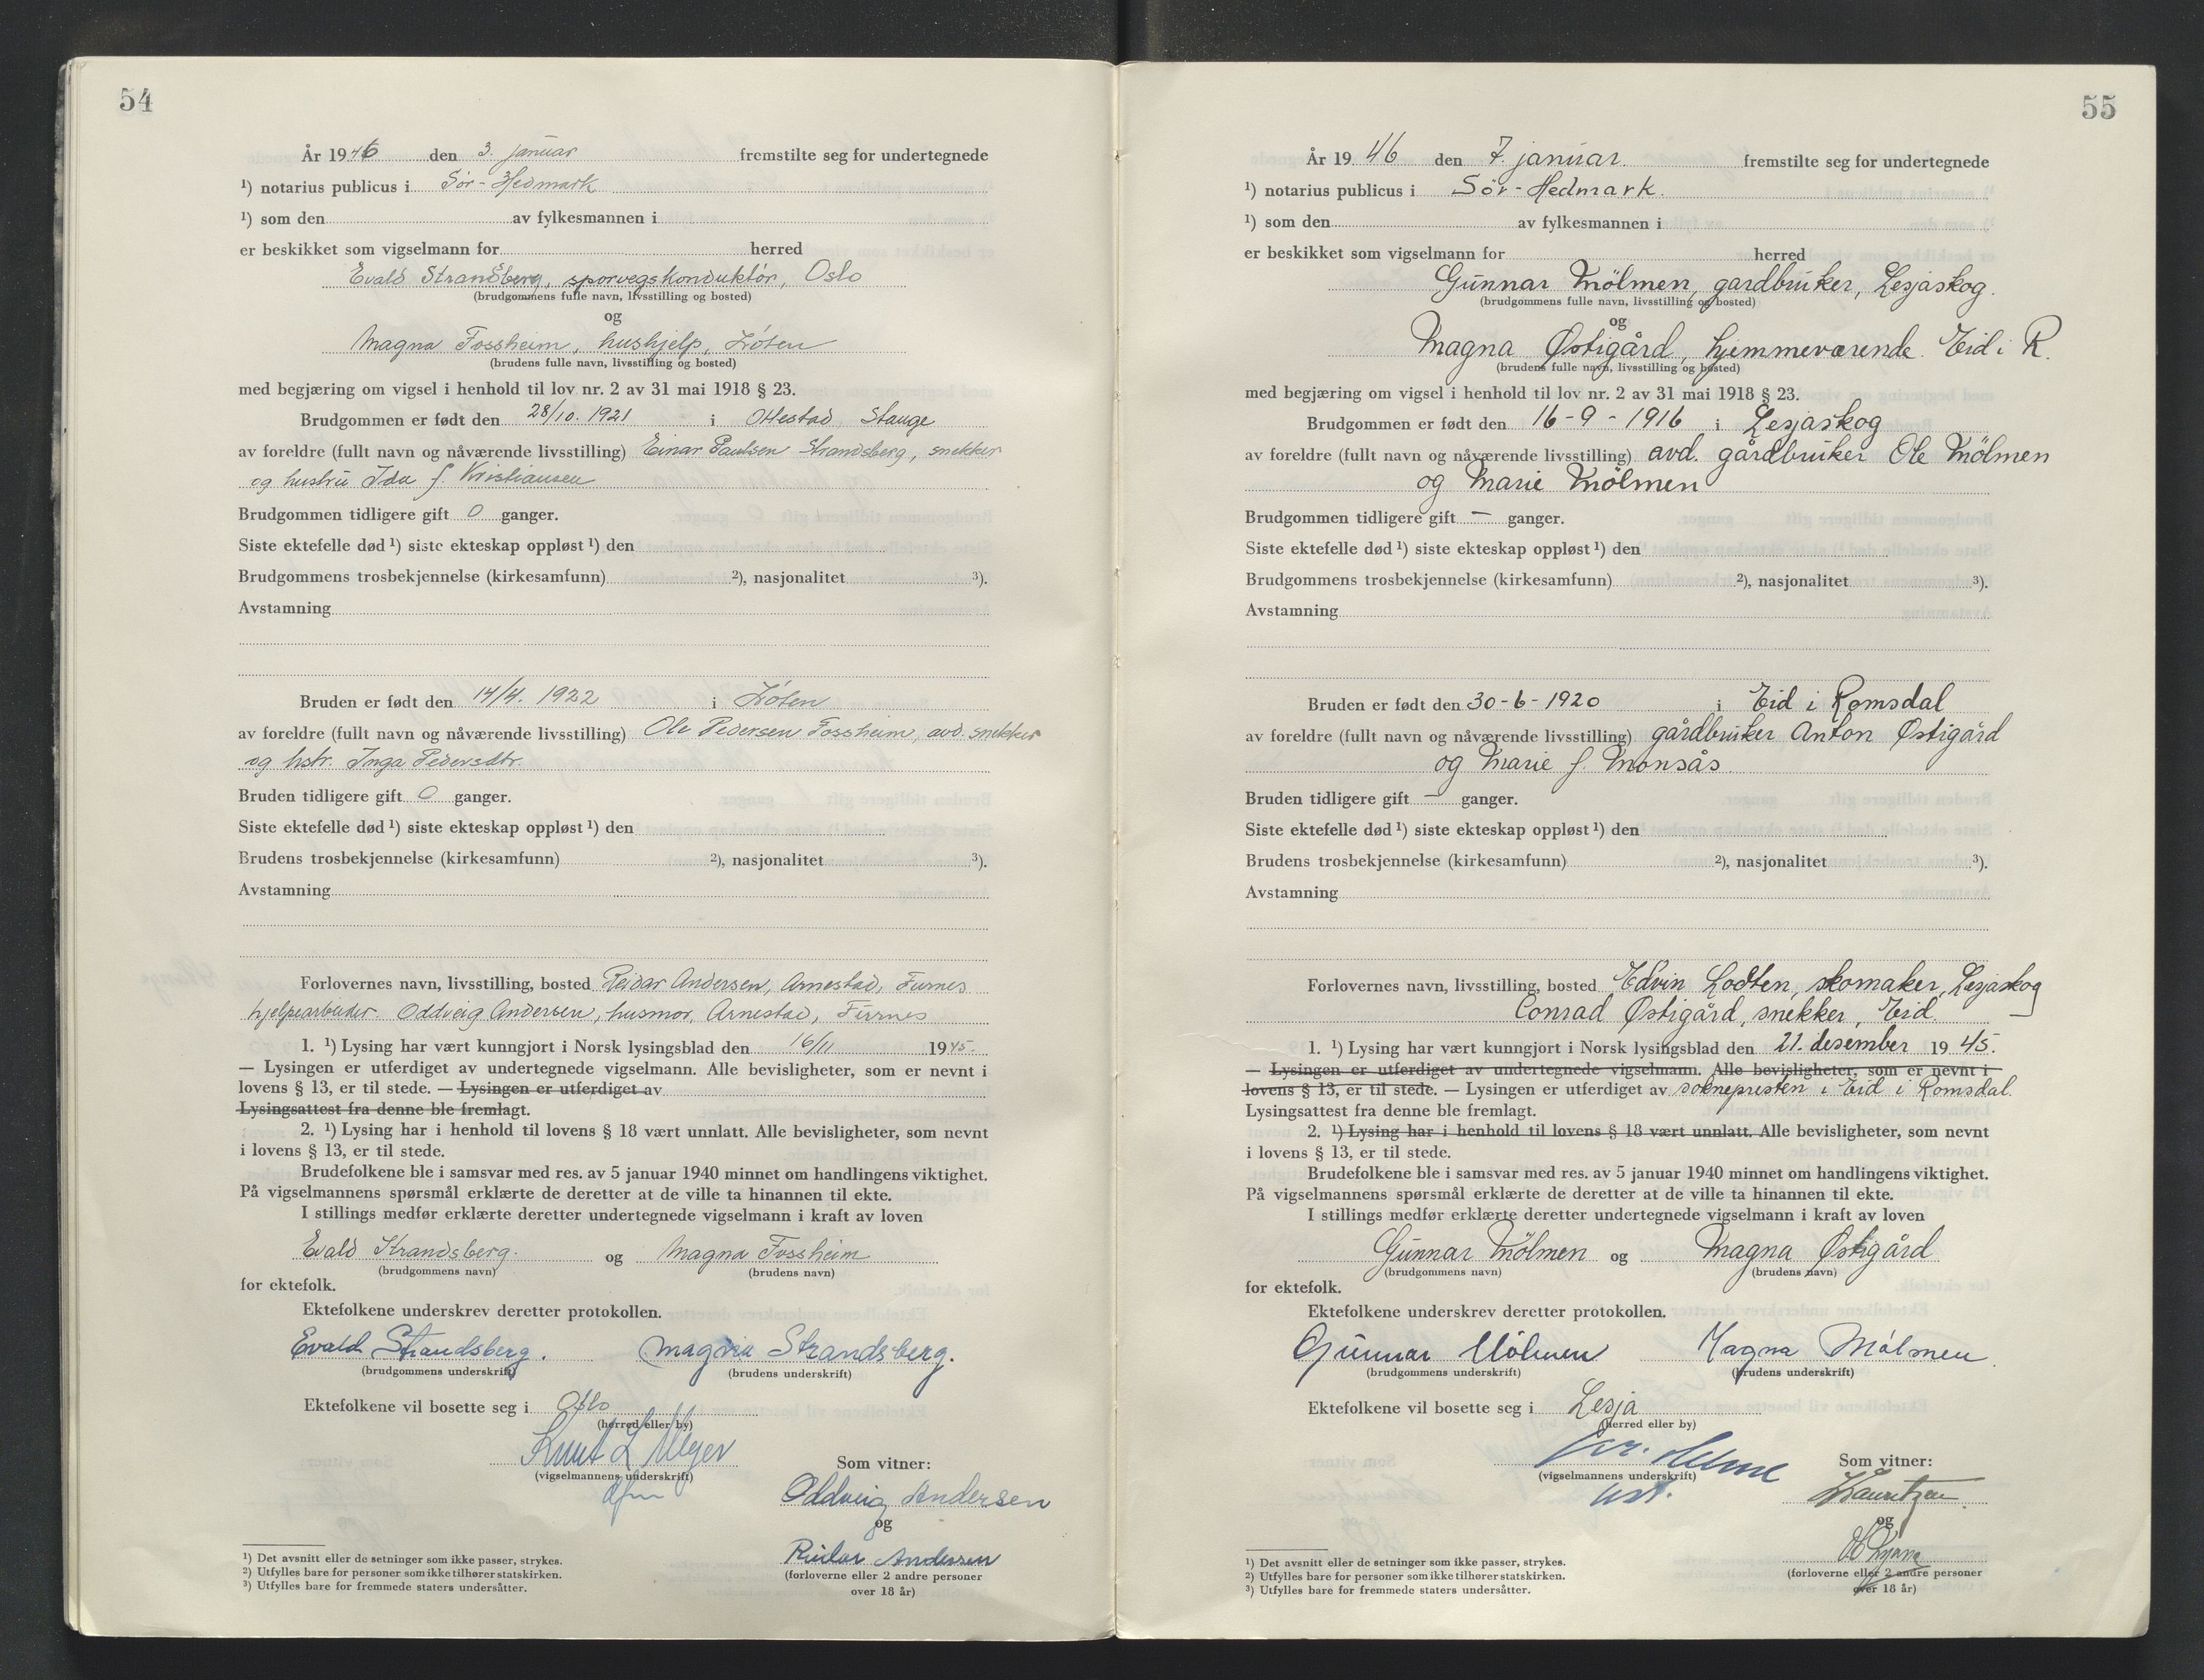 54
År 1946 den 3. januar fremstilte seg for undertegnede
¹) notarius publicus i Sør-Hedmark
¹) som den av fylkesmannen i
er beskikket som vigselmann for herred
Evald Strandsberg, sporvegskonduktør, Oslo
(brudgommens fulle navn, livsstilling og bosted)
og
Magna Fossheim, hushjelp, Løten
(brudens fulle navn, livsstilling og bosted)
med begjæring om vigsel i henhold til lov nr. 2 av 31 mai 1918 § 23.
Brudgommen er født den 28/10. 1921 i Ottestad, Stange
av foreldre (fullt navn og nåværende livsstilling) Einar Paulsen Strandsberg, snekker
og hustru Ida f. Kristiansen
Brudgommen tidligere gift 0 ganger.
Siste ektefelle død ¹) siste ekteskap oppløst ¹) den
Brudgommens trosbekjennelse (kirkesamfunn) ²), nasjonalitet ³).
Avstamning
Bruden er født den 14/4. 1922 i Løten
av foreldre (fullt navn og nåværende livsstilling) Ole Pedersen Fossheim, avd. snekker
og hstr. Inga Pedersdtr.
Bruden tidligere gift 0 ganger.
Siste ektefelle død ¹) siste ekteskap oppløst ¹) den
Brudens trosbekjennelse (kirkesamfunn) ²), nasjonalitet ³).
Avstamning
Forlovernes navn, livsstilling, bosted Reidar Andersen, Arnestad, Furnes
hjelpearbeider. Oddveig Andersen, husmor, Arnestad, Furnes
1. ¹) Lysing har vært kunngjort i Norsk lysingsblad den 16/11 1945.
— Lysingen er utferdiget av undertegnede vigselmann. Alle bevisligheter, som er nevnt i
lovens § 13, er til stede. — Lysingen er utferdiget av
Lysingsattest fra denne ble fremlagt.
2. ¹) Lysing har i henhold til lovens § 18 vært unnlatt. Alle bevisligheter, som nevnt
i lovens § 13, er til stede.
Brudefolkene ble i samsvar med res. av 5 januar 1940 minnet om handlingens viktighet.
På vigselmannens spørsmål erklærte de deretter at de ville ta hinannen til ekte.
I stillings medfør erklærte deretter undertegnede vigselmann i kraft av loven
Evald Strandsberg. og Magna Fossheim
(brudgommens navn) (brudens navn)
for ektefolk.
Ektefolkene underskrev deretter protokollen.
Evald Strandsberg. Magna Strandsberg.
(brudgommens underskrift) (brudens underskrift)
Ektefolkene vil bosette seg i Oslo
(herred eller by)
Knut L Meyer
(vigselmannens underskrift)
Som vitner:
Oddveig Andersen
og
Reidar Andersen
(forloverne eller 2 andre personer
over 18 år)
¹) Det avsnitt eller de setninger som ikke passer, strykes.
²) Utfylles bare for personer som ikke tilhører statskirken.
³) Utfylles bare for fremmede staters undersåtter.
55
År 1946 den 7. januar. fremstilte seg for undertegnede
¹) notarius publicus i Sör-Hedmark.
¹) som den av fylkesmannen i
er beskikket som vigselmann for herred
Gunnar Mölmen, gardbruker, Lesjaskog.
(brudgommens fulle navn, livsstilling og bosted)
og
Magna Østigård, hjemmeværende. Eid i R.
(brudens fulle navn, livsstilling og bosted)
med begjæring om vigsel i henhold til lov nr. 2 av 31 mai 1918 § 23.
Brudgommen er født den 16-9-1916 i Lesjaskog
av foreldre (fullt navn og nåværende livsstilling) avd. gårdbruker Ole Mölmen
og Marie Mölmen
Brudgommen tidligere gift — ganger.
Siste ektefelle død ¹) siste ekteskap oppløst ¹) den
Brudgommens trosbekjennelse (kirkesamfunn) ²), nasjonalitet ³).
Avstamning
Bruden er født den 30-6-1920 i Eid i Romsdal
av foreldre (fullt navn og nåværende livsstilling) gårdbruker Anton Østigård
og Marie f. Monsås.
Bruden tidligere gift — ganger.
Siste ektefelle død ¹) siste ekteskap oppløst ¹) den
Brudens trosbekjennelse (kirkesamfunn) ²), nasjonalitet ³).
Avstamning
Forlovernes navn, livsstilling, bosted Edvin Lodten, skomaker, Lesjaskog
Conrad Østigård, snekker, Eid.
1. ¹) Lysing har vært kunngjort i Norsk lysingsblad den 21. desember 1945.
— Lysingen er utferdiget av undertegnede vigselmann. Alle bevisligheter, som er nevnt i
lovens § 13, er til stede. — Lysingen er utferdiget av soknepresten i Eid i Romsdal.
Lysingsattest fra denne ble fremlagt.
2. ¹) Lysing har i henhold til lovens § 18 vært unnlatt. Alle bevisligheter, som nevnt
i lovens § 13, er til stede.
Brudefolkene ble i samsvar med res. av 5 januar 1940 minnet om handlingens viktighet.
På vigselmannens spørsmål erklærte de deretter at de ville ta hinannen til ekte.
I stillings medfør erklærte deretter undertegnede vigselmann i kraft av loven
Gunnar Mölmen og Magna Østigård
(brudgommens navn) (brudens navn)
for ektefolk.
Ektefolkene underskrev deretter protokollen.
Gunnar Mölmen Magna Mölmen.
(brudgommens underskrift) (brudens underskrift)
Ektefolkene vil bosette seg i Lesja
(herred eller by)
(vigselmannens underskrift)
Som vitner:
Lauritzen
og
(forloverne eller 2 andre personer
over 18 år)
¹) Det avsnitt eller de setninger som ikke passer, strykes.
²) Utfylles bare for personer som ikke tilhører statskirken.
³) Utfylles bare for fremmede staters undersåtter.